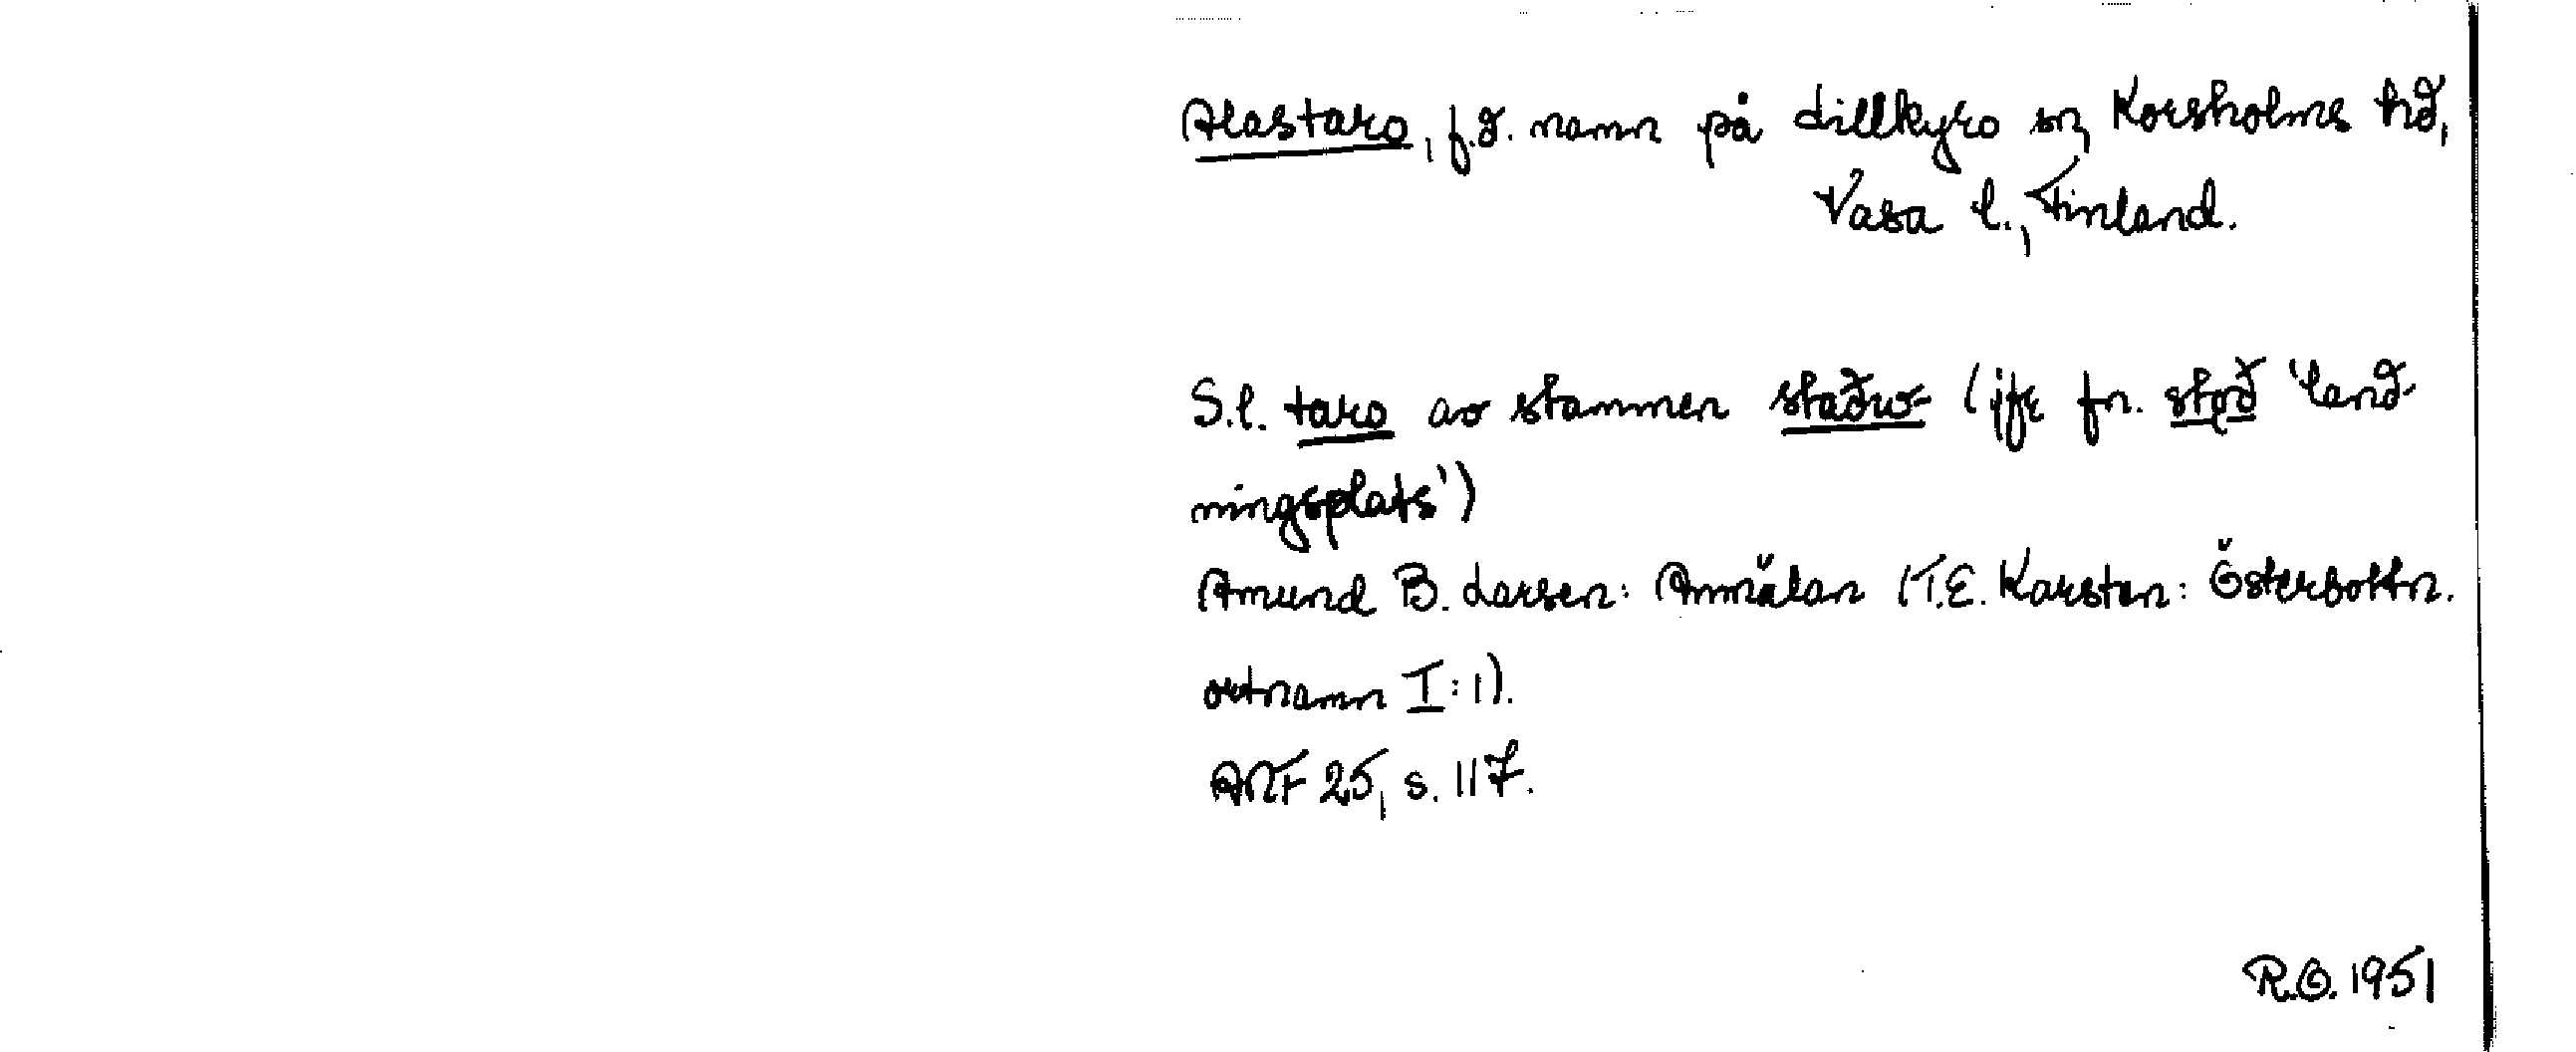 Alastaro, f.d. namn på Lillkyro sn, Korsholms hd,
Vasa l., Finland.
S.l. taro av stammen staðw- (jfr fn. stǫð 'land-
ningsplats')
Amund B. Larsen: Anmälan (T.E. Karsten: Österbottn.
ortnamn I:1).
ANF 25, s. 117.
R.O. 1951